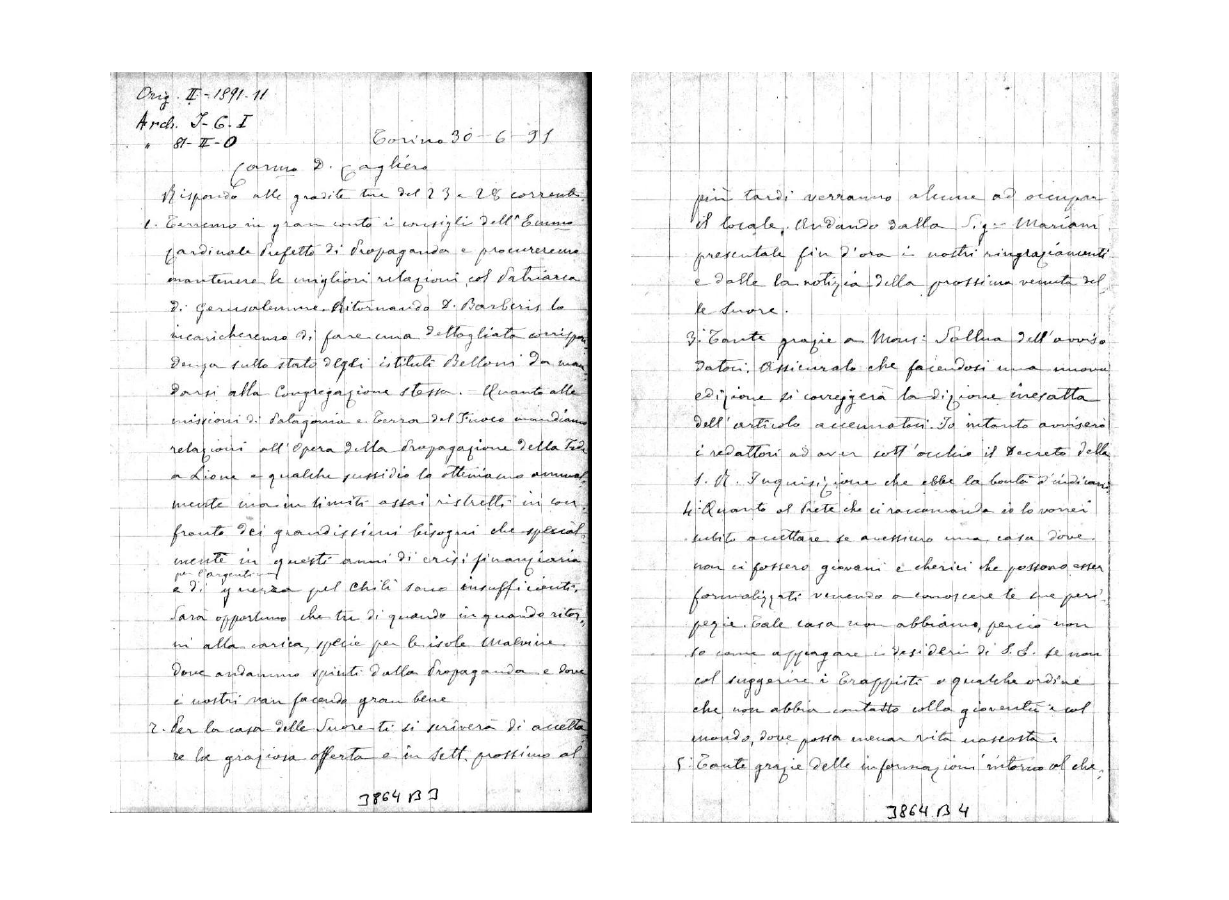 Orig. II-1891.11
Arch. J-C. I
" 81-II-0
Torino 30-6-91
Carmo D. Cagliero
Rispondo alle gradite tue del 23 e 28 corrente.
1. Terremo in gran conto i consigli dell'Emmo
Cardinale Prefetto di Propaganda e procureremo
mantenere le migliori relazioni col Patriarca
di Gerusalemme. Ritornando D. Barberis lo
incaricheremo di fare una dettagliata corrispon
denza sullo stato degli istituti Belloni da man
darsi alla Congregazione stessa. - Quanto alle
missioni di Patagonia e Terra del Fuoco mandiamo
relazioni all'Opera della Propagazione della Fede
a Lione e qualche sussidio lo otteniamo annual
mente ma in limiti assai ristretti in con-
fronto dei grandissimi bisogni che special
mente in questi anni di crisi finanziaria
per l'argentina
e di guerra pel Chilì sono insufficienti.
Sarà opportuno che tu di quando in quando ritor,
ni alla carica, specie per le isole Malvine
dove andammo spinti dalla Propaganda e dove
i nostri van facendo gran bene
2. Per la casa delle Suore ti si scriverà di accetta
re la graziosa offerta e in Sett. prossimo al
3864 B 3
più tardi verranno alcune ad occupar
il locale. Andando dalla Sig.ra Mariani
presentale fin d'ora i nostri ringraziamenti
e dalle la notizia della prossima venuta del
le Suore.
3. Tante grazie a Mons. Sallua dell'avviso
datoci. Assicuralo che facendosi una nuova
edizione si correggerà la dizione inesatta
dell'articolo accennatoci. Io intanto avviserò
i redattori ad aver sott'occhio il Decreto della
S. R. Inquisizione che ebbe la bontà d'indicarci
4. Quanto al Prete che ci raccomanda io lo vorrei
subito accettare se avessimo una casa dove
non ci fossero giovani e cherici che possono esser
formalizzati venendo a conoscere le sue peri
pezie. Tale casa non abbiamo, perciò non
so come appagare i desideri di S.E. se non
col suggerire i Trappisti o qualche ordine
che non abbia contatto colla gioventù e col
mondo, dove possa menar vita nascosta
5. Tante grazie delle informazioni intorno al che,
3864 B 4